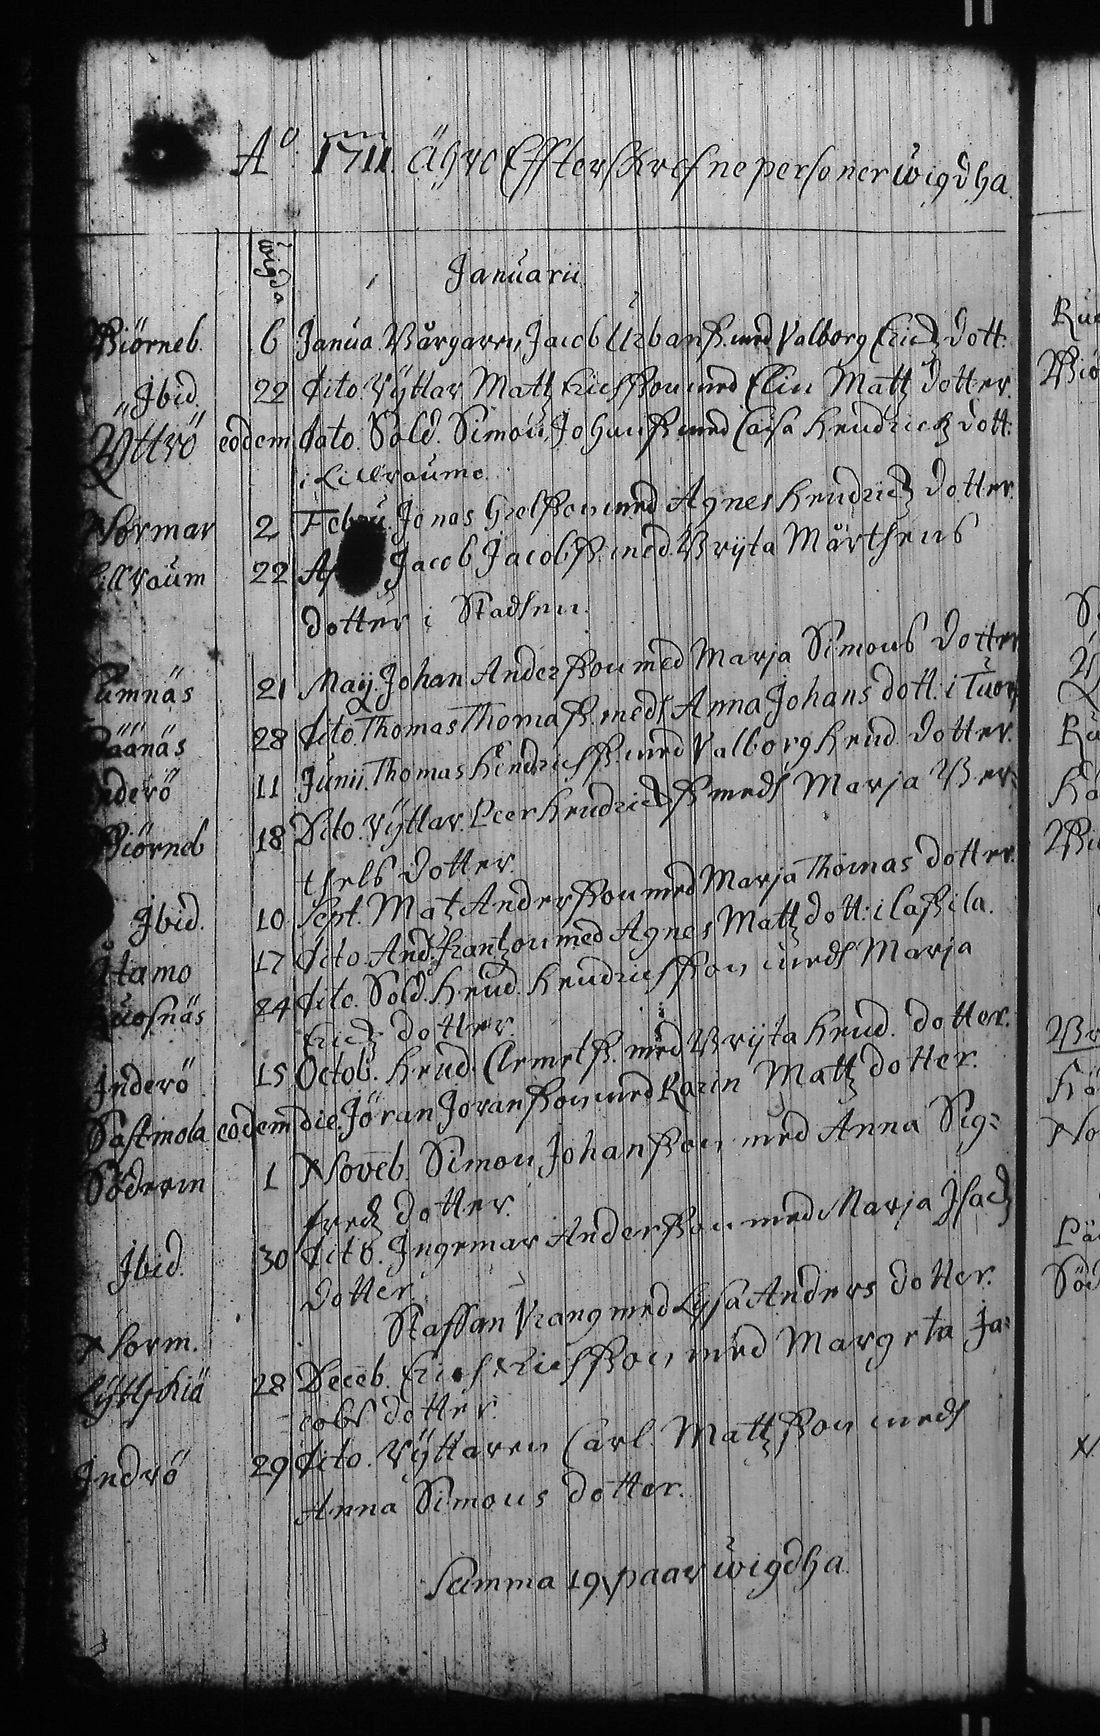 A:o 1711 ähre Efftersskrefne personer wigdha
wigda
Januarii
Biörneb. 6 Janua. Bårgaren Jacob Urbanss. med Valborg Erichz dott:
Ibid. 22 dito. Ryttar Matz Erichsson med Elin Matz dotter.
Yttrö eodem dato. Sold. Simon Johanss. med Caisa Hendrichz dott:
i Lillraumo.
Normar 2 Febru. Jonas Grelsson med Agnes Hendrichz dotter.
Lillraum 22 Jacob Jacobss. med Brijta Mårthens
dotter i Stadsen.
Lumnäs 21 Maij. Johan Andersson med Marja Simons dotter
näs 28 dito. Thomas Thomass. medh Anna Johans dott: i
Inderö 11 Junii. Thomas Hindrichss. med Valborg Hend. dotter.
Biörneb 18 Dito. Ryttar. Peer Hendrichss. medh Marja Ber=
thels dotter.
Ibid. 10 Sept. Matz Andersson med Marja Thomas dotter.
Åtamo 17 dito. And. Frantzon med Agnes Matz dott: i Lassila.
24 dito. Sold. Hend. Hendrichsson medh Marja
Erichz dotter.
Inderö 15 Octob. Hend. Clemetss. med Brijta Hend. dotter.
Sastmola eodem die. Jöran Joransson med Karin Matz dotter.
Söderm 1 Noveb. Simon Johansson med Anna Sig=
fredz dotter.
Ibid. 30 dito. Ingemar Andersson med Marja Isachz
dotter.
Norm. Staffan Vrang med Lysa Anders dotter.
Lyttskiä 28 Deceb. Erich Erichsson med Margeta Ja=
cobs dotter.
Indrö 29 dito. Ryttaren Carl Matzson medh
Anna Simons dotter.
Summa 19 paar wigdha